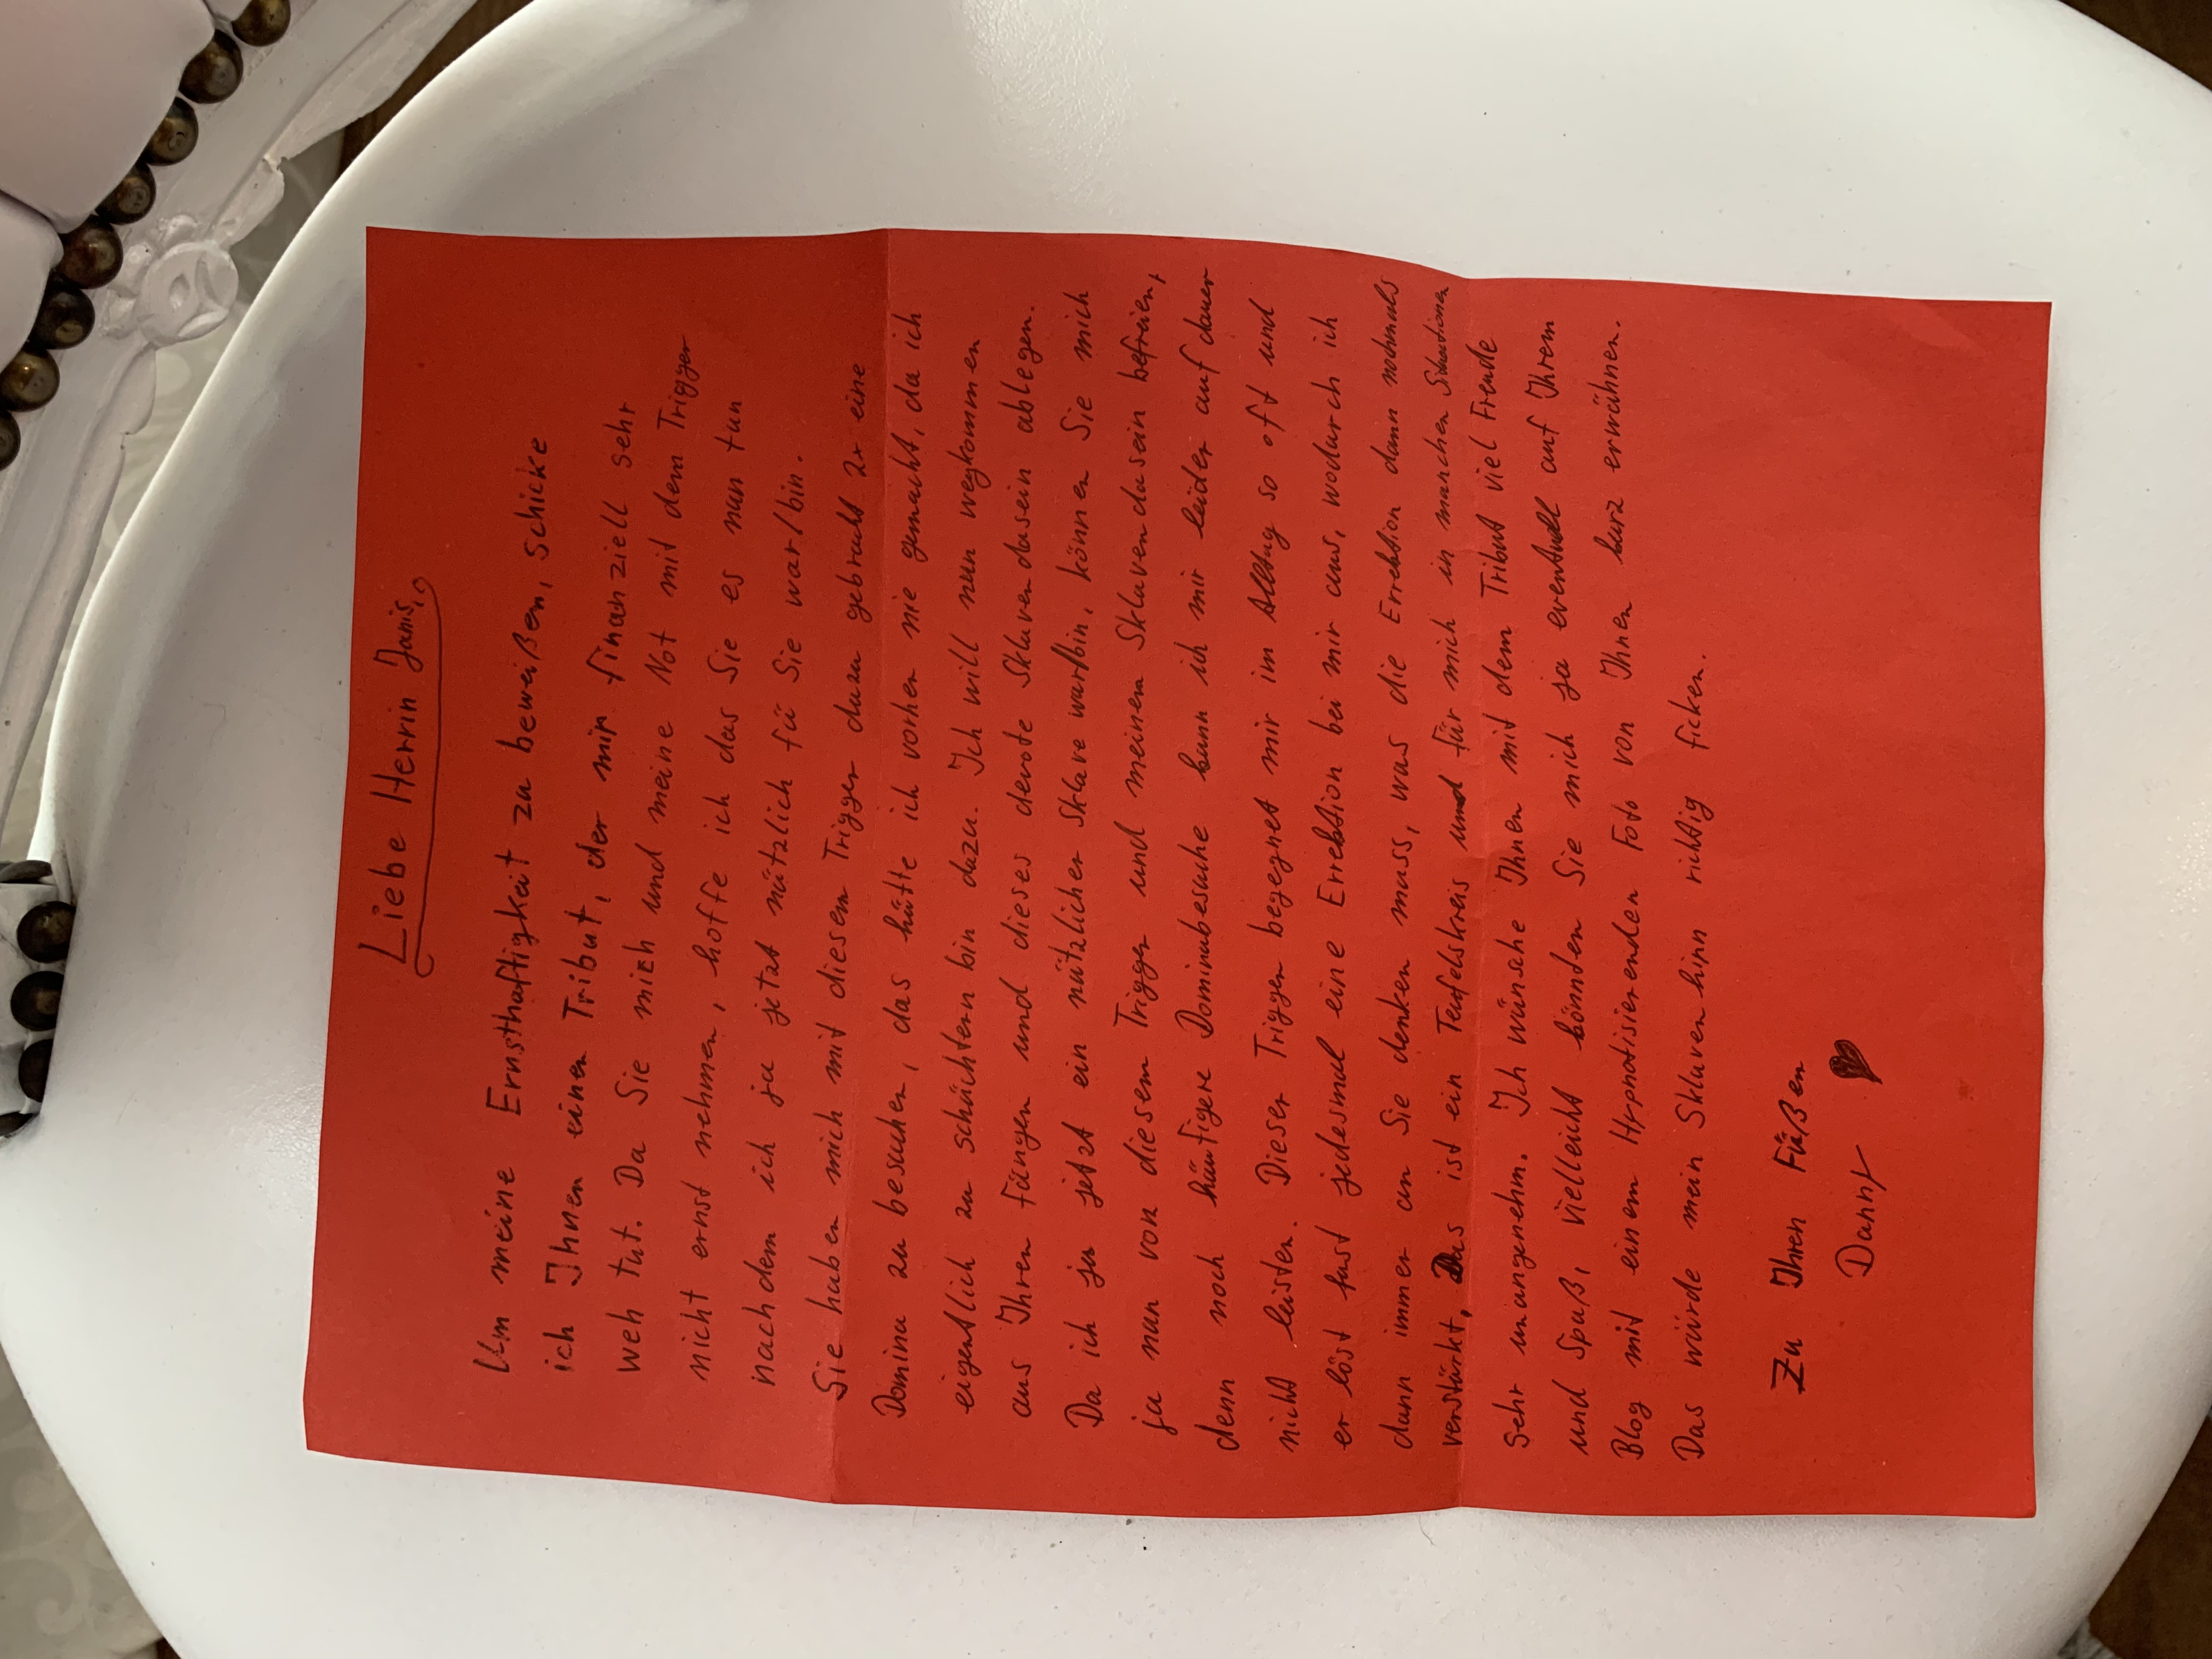 Liebe Herrin Janis,
Um meine Ernsthaftigkeit zu beweißen, schicke
ich Ihnen einen Tribut, der mir finanziell sehr
weh tut. Da Sie mich und meine Not mit dem Trigger
nicht ernst nehmen, hoffe ich das Sie es nun tun
nachdem ich ja jetzt nützlich für Sie war/bin.
Sie haben mich mit diesem Trigger dazu gebracht 2x eine
Domina zu besuchen, das hätte ich vorher nie gemacht, da ich
eigentlich zu schüchtern bin dazu. Ich will nun wegkommen
aus Ihren Fängen und dieses devote Sklavendasein ablegen.
Da ich ja jetzt ein nützlicher Sklave war/bin, können Sie mich
ja nun von diesem Trigger und meinem Sklavendasein befreien,
denn noch häufigere Dominabesuche kann ich mir leider auf dauer
nicht leisten. Dieser Trigger begegnet mir im Alltag so oft und
er löst fast jedesmal eine Errektion bei mir aus, wodurch ich
dann immer an Sie denken muss, was die Errektion dann nochmals
verstärkt, Das ist ein Teufelskreis und für mich in manchen Situationen
sehr unangenehm. Ich wünsche Ihnen mit dem Tribut viel Freude
und Spaß, vielleicht könnden Sie mich ja eventuell auf Ihrem
Blog mit einem Hypnotisierenden Foto von Ihnen kurz erwähnen.
Das würde mein Sklavenhirn richtig ficken.
Zu Ihren Füßen
Danny